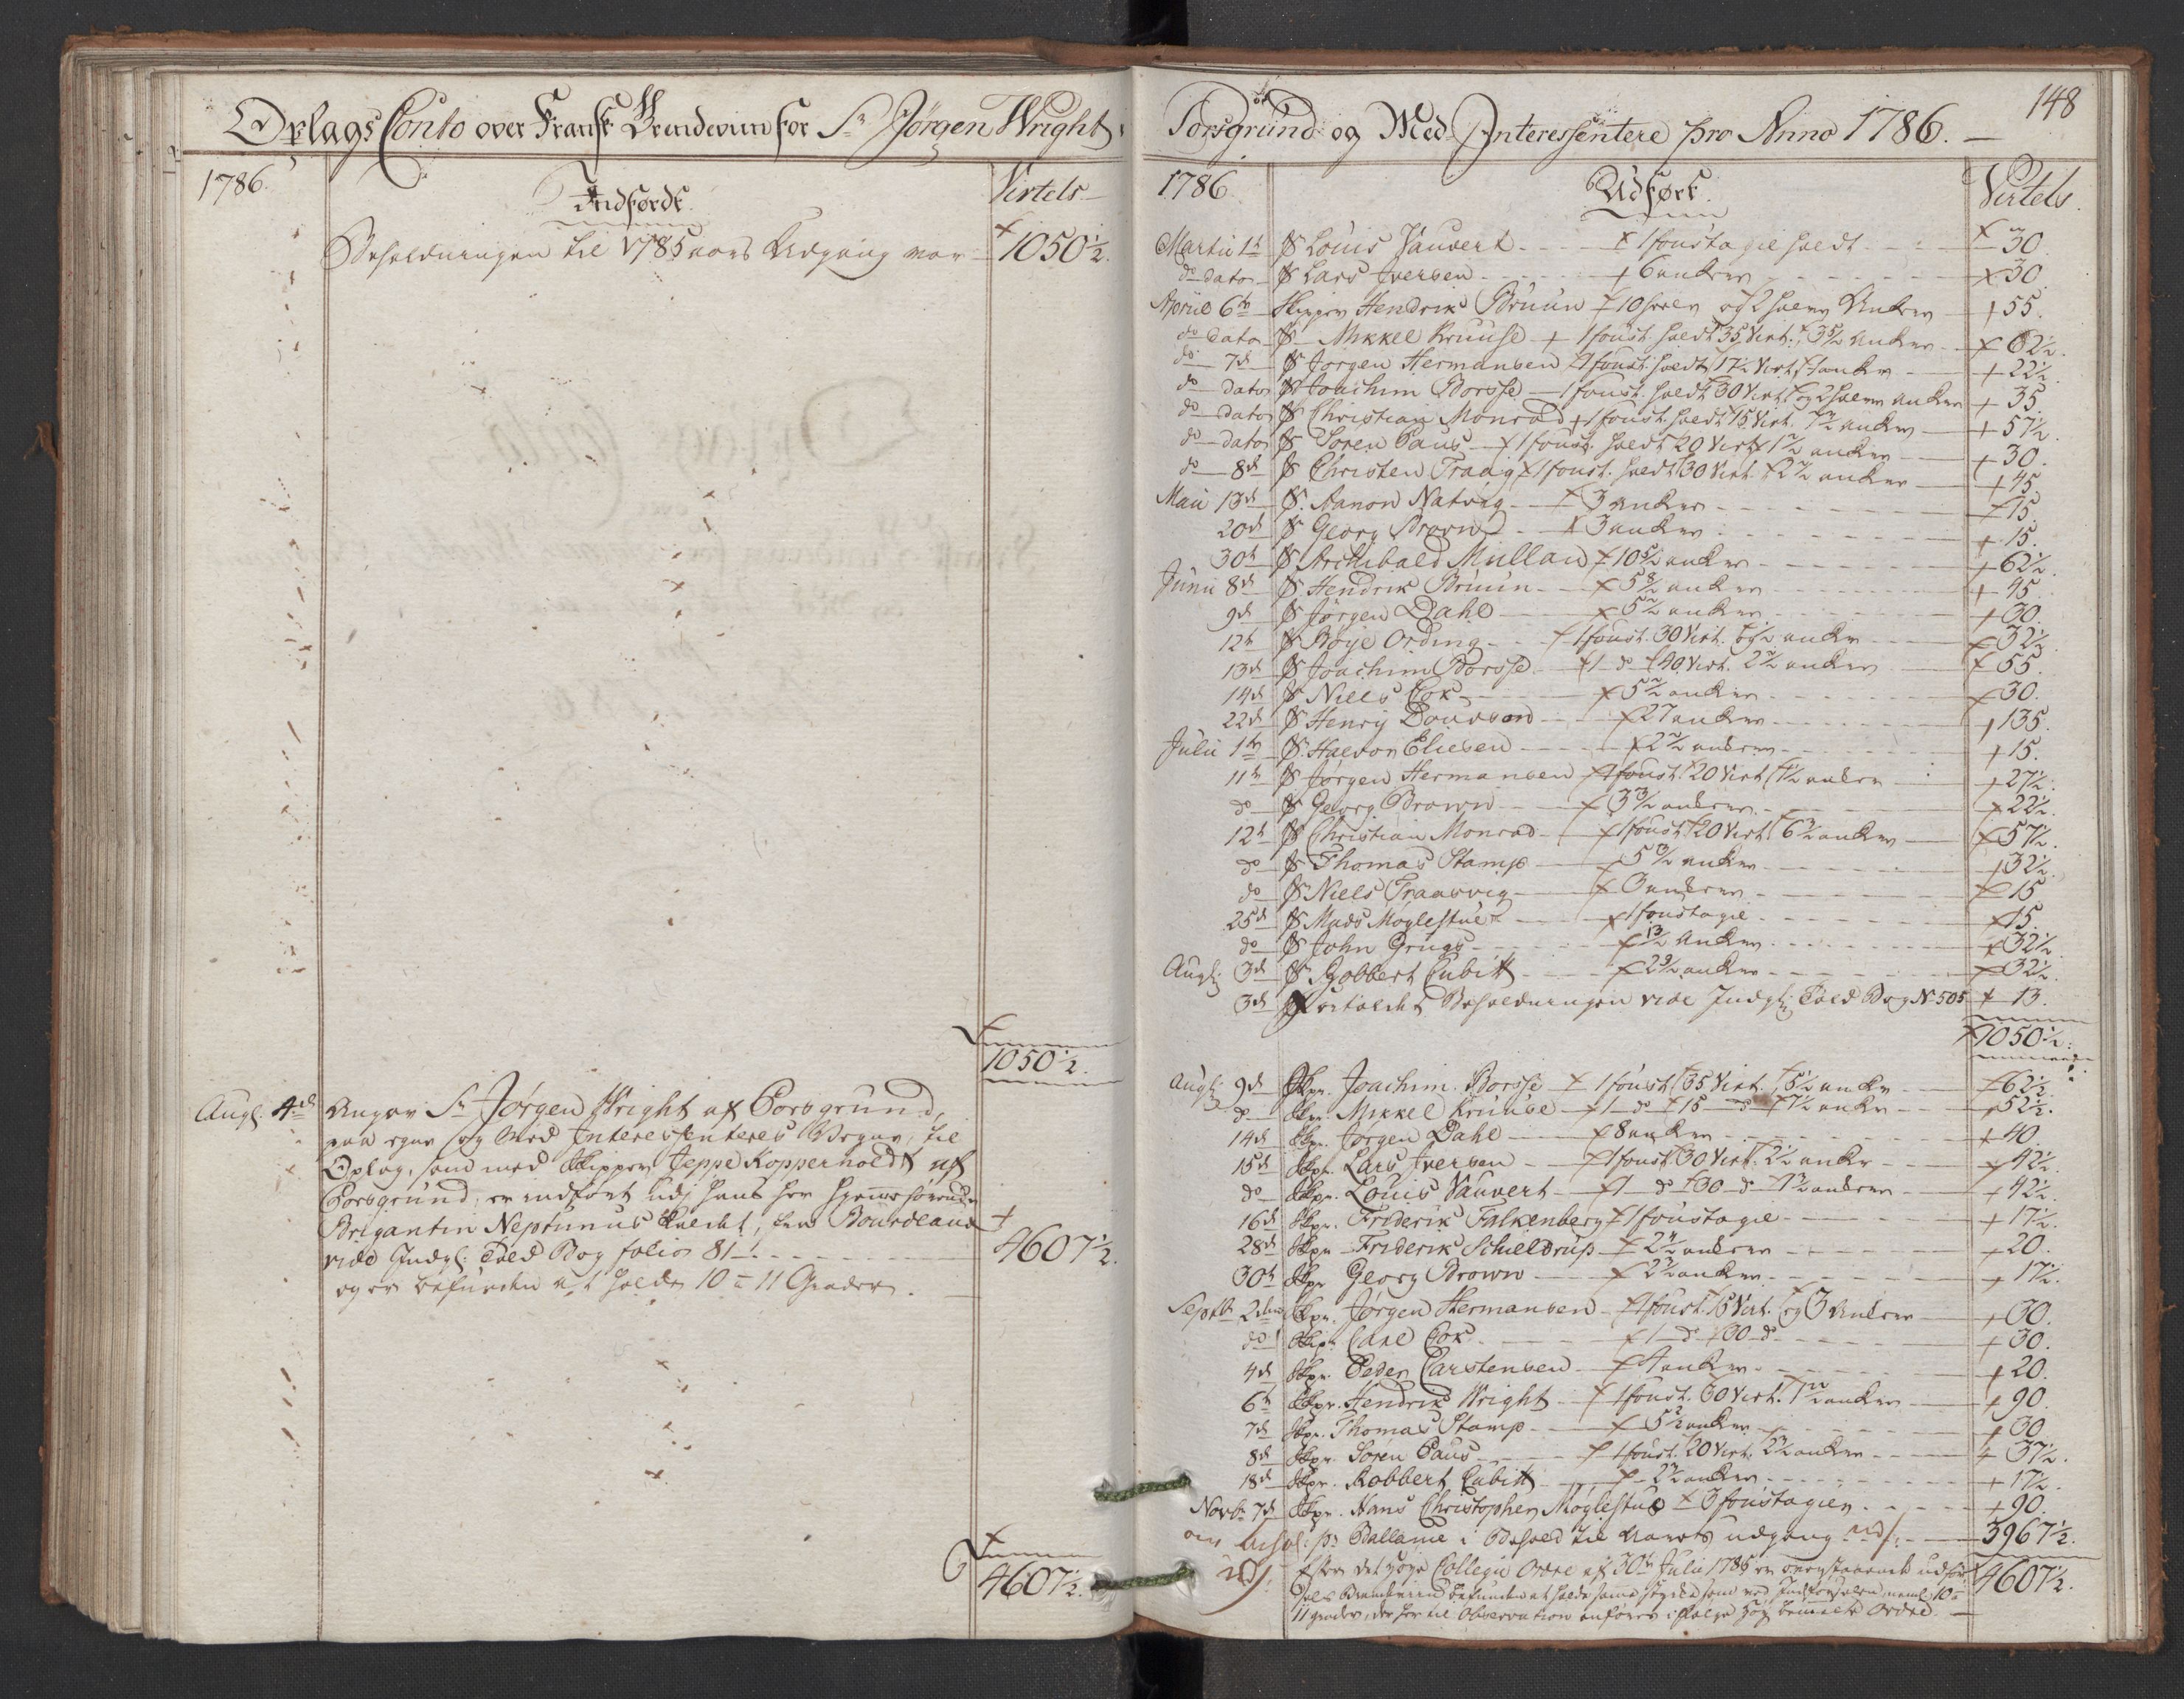 Oplags Conto over Fransk Brendeviin for Sr. Jørgen Wright,
1786. Indførdt. Virtels
Beholdningen til 1785 aars Udgang var 1050½.
1050½.
Augl. 4de Angav Sr. Jørgen Wright af Porsgrund,
paa egne og Med Interessenteres Vegne, til
Oplag, som med Skipper Jeppe Kopperholdt af
Porsgrund, er indført udj hans her hiemmehørende
Brigantin Neptunus kaldet, fra Bourdeaux
vide Indgl. Told Bog folio 81 4607½.
og er befunden at holde 10 a 11 Grader.
4607½.
148
Porsgrund og Med-Interessentere pro Anno 1786.
1786. Udført. Virtels.
Martii 1te S Louis Vauvert 1 foustagie holdt 30
do dato S Lars Iversen 6 anker 30
Aprill 6te Skipper Hendrik Bruun 10 heele og 2 halve Anker 55.
do dato S Mikkel Kruuse 1 foust. holdt 35 Virt., 3 5/2 anker 62½.
do 7de S Jørgen Hermansen 1 foust. holdt 17½ Virt. 1 anker 22½
do dato S Joachim Borsse 1 foust. holdt 30 Virt. og 2 halve anker 35
do dato S Christian Monrad 1 foust. holdt 15 Virt. anker 57½.
do dato S Søren Paus 1 foust. holdt 20 Virt. anker 30.
do 8de S Christen Traag 1 foust. holdt 30 Virt. anker 45
Maii 13de S. Aanon Natvig 3 anker 15
20de S Georg Brown 3 anker 15.
30te S Archibald Mullan 10 5/2 anker 62½
Junii 8de S Hendrik Bruun 5 8/2 anker 45
9de S Jørgen Dahl 5 2/2 anker 30.
12te S Røye Ording 1 foust. 30 Virt. og ½ anker 32½
13de S Joachim Borsse 1 do 40 Virt. 2 2/2 anker 55.
14de S Niels Cok 5 2/2 anker 30.
22de S Henry Davison 27 anker 135.
Julii 1te S Halvor Eliesen 2 2/2 anker 15.
11te S Jørgen Hermansen 1 foust. 20 Virt. 1½ anker 27½.
do S Georg Brown 3 3/2 anker 22½.
12te S Christian Monrad 1 foust. 20 Virt. 6 3/2 anker 57½.
do S Thomas Stamp 5 3/2 anker 32½.
do S Niels Traasvig 3 anker 15
25de S Mads Møglestue 1 foustagie 15.
do S John Grugs 13/2 Anker 32½
Augl. 3de S Robbert Cubitt 2 9/2 anker 32½.
3de Fortoldet Beholdningen vide Indgl. Told Bog No. 505 13.
1050½.
Augl. 9de Skpr. Joachim Borsse 1 foust. 35 Virt. 5½ anker 62½
do Skpr. Mikkel Kruuse 1 do 15 do 7½ anker 52½.
14de Skpr. Jørgen Dahl 8 anker 40.
15de Skpr. Lars Iversen 1 foust. 30 Virt. 2½ anker 42½.
do Skpr. Louis Vauvert 1 do 30 do anker 42½.
16de Skpr. Friderik Falkenberg 1 foustagie 17½.
28de Skpr. Friderik Schieldrup 2 4/2 anker 20.
30te Skpr. Georg Brown 2 3/2 anker 17½.
Septbr 2den Skpr. Jørgen Hermansen 1 foust. 15 Virt. og 3 Anker 30.
do Skpr. Carl Cok 1 do 30 do 30.
4de Skpr. Peder Carstensen 4 anker 20.
6te Skpr. Hendrik Wright 1 foust. 30 Virt. anker 90.
7de Skpr. Thomas Stamp 5 2/2 anker 30
8de Skpr. Søren Paus 1 foust. 20 Virt. 2 3/2 anker 37½.
18de Skpr. Robbert Cubitt 2 3/2 anker 17½
Novbr 7de Skpr. Hans Christopher Møglestue 3 foustagier 90.
pr. Ballance i Behold til Aarets udgang 3967½.
Efter det høye Collegii Ordre af 30te Julii 1785 er ovenstaaende udfør- 4607½.
te Brendeviin befunden at holde samme styrke som ved Indførselen, neml. 10 a
11 grader, der her til Observation anføres i følge høy bemelte Ordre.